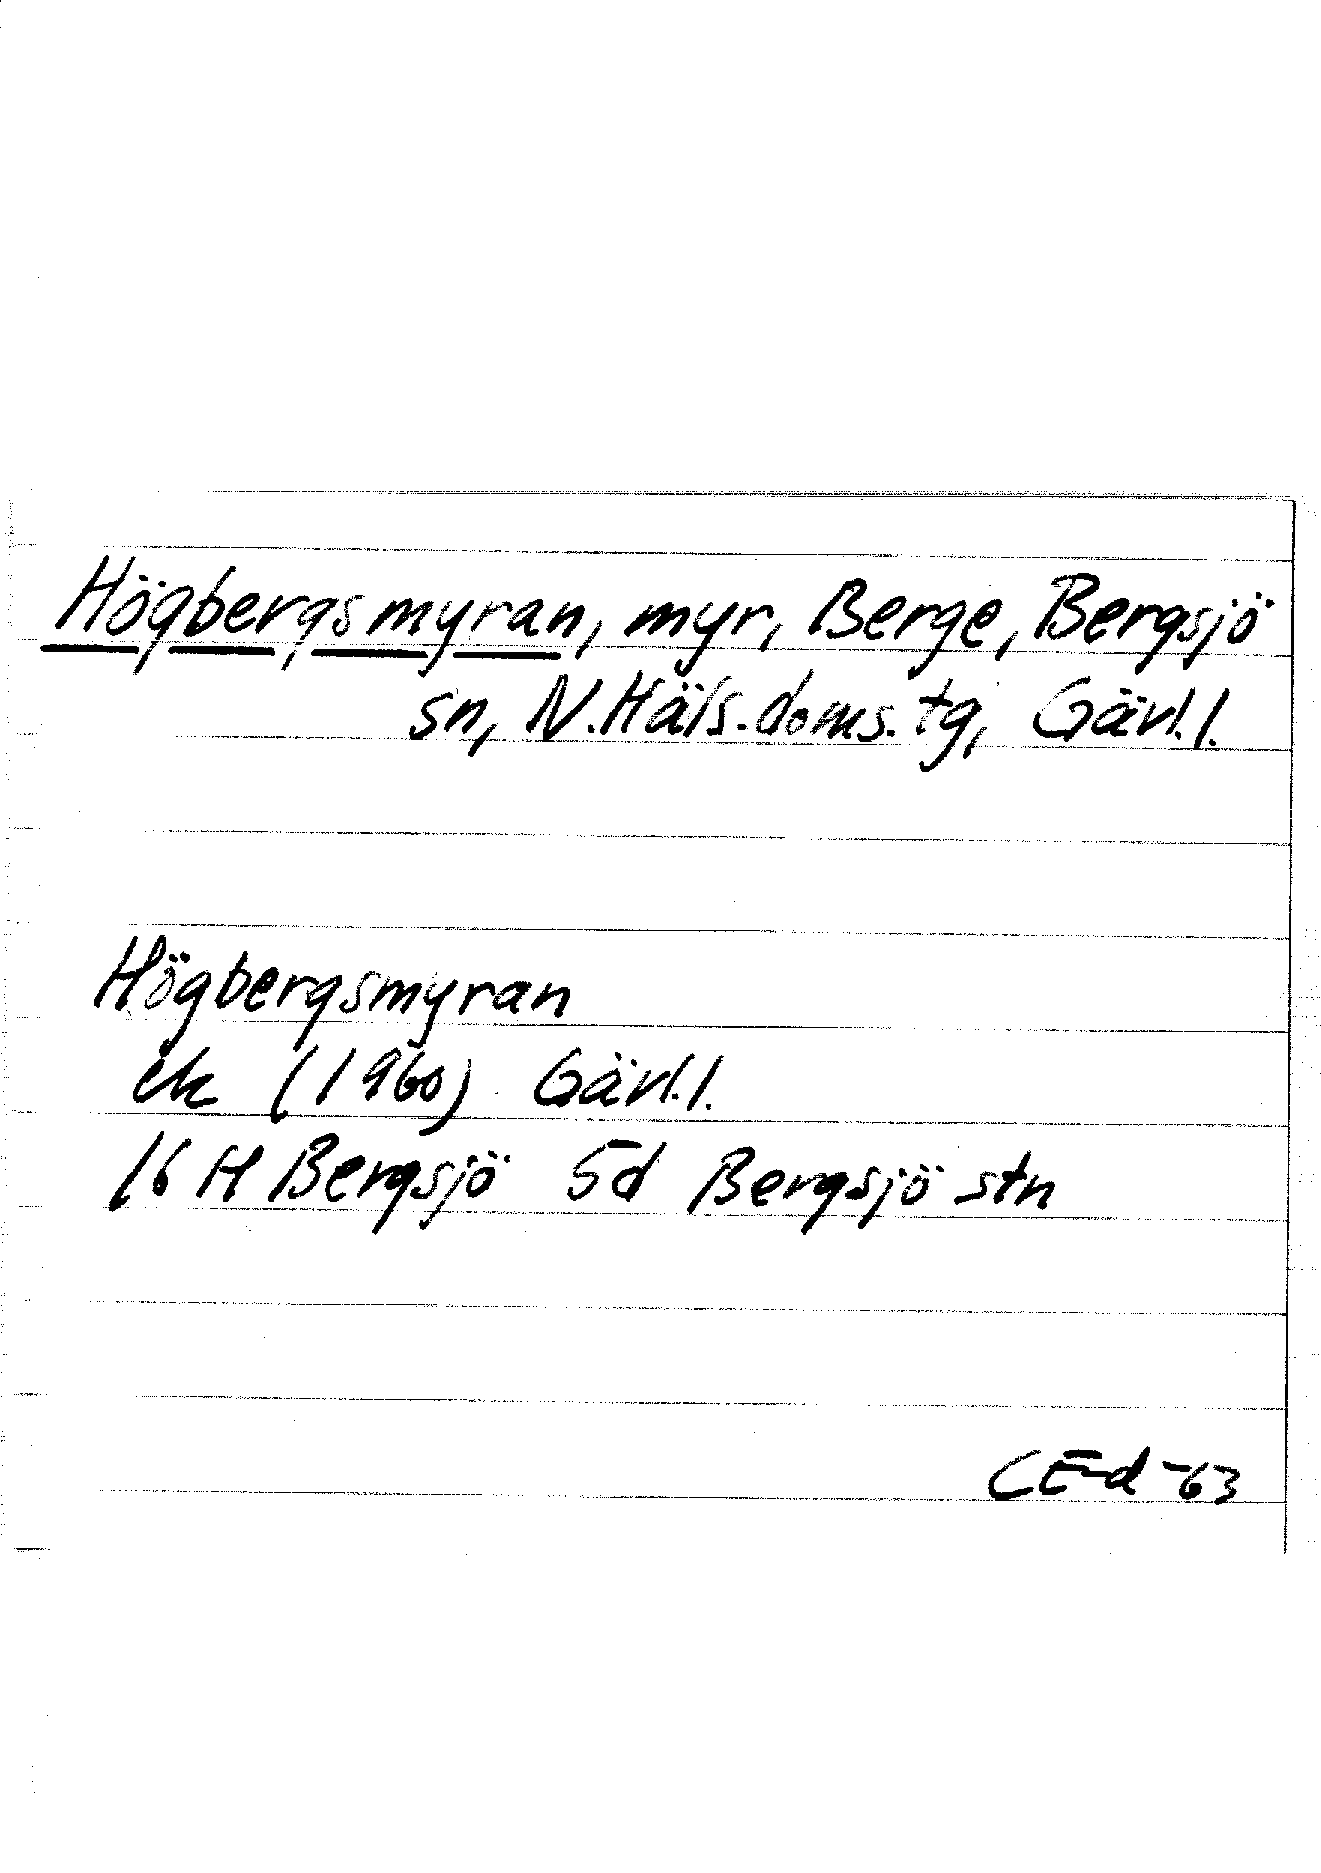 Högbergsmyran, myr, Berge, Bergsjö
sn, N.Häls.doms.tg, Gävl.l.
Högbergsmyran
ek (1960) Gävl.l.
16 H Bergsjö 5d Bergsjö stn
CEd -63